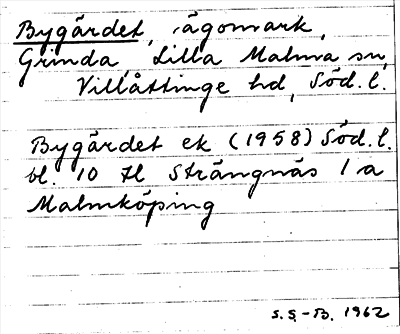 Bygärdet, ägomark,
Grinda, Lilla Malma sn,
Villåttinge hd, Söd. l.
Bygärdet ek (1958) Söd. l.
bl. 10 H Strängnäs 1 a
Malmköping
S. S.-B. 1962